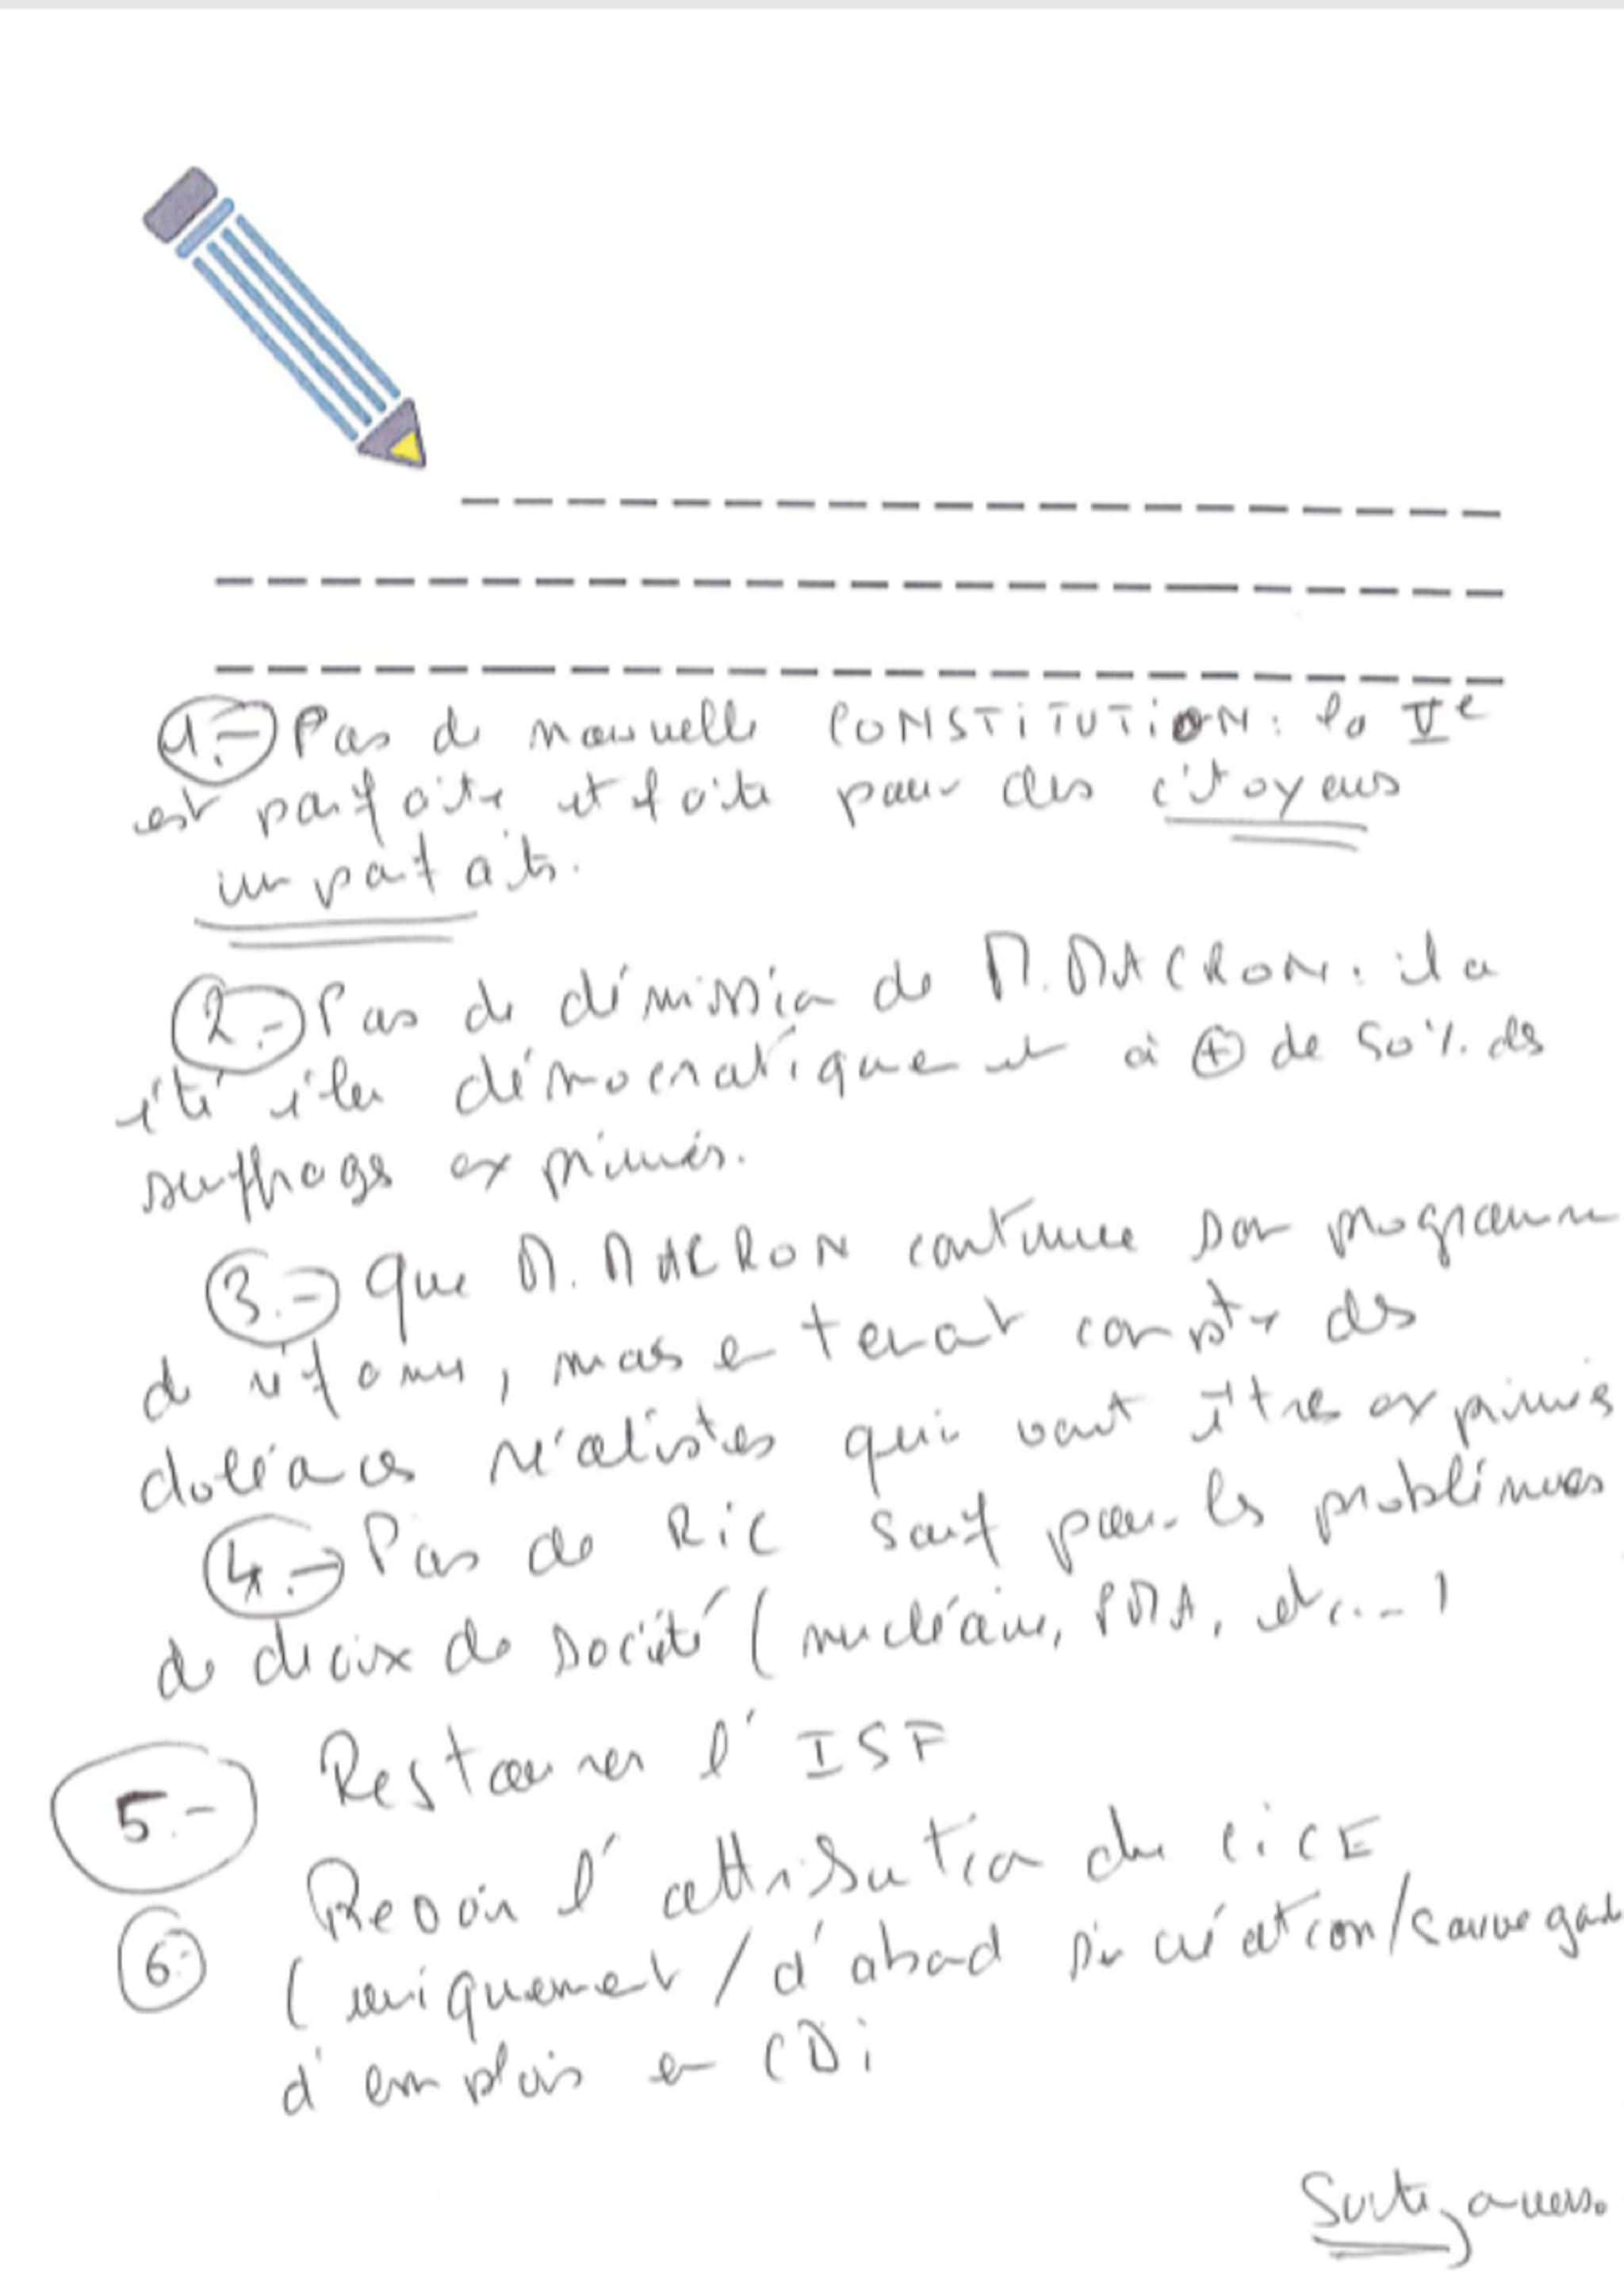 1.- Pas de nouvelle CONSTITUTION : la Ve
est parfaite et faite pour des citoyens
imparfaits.
2.- Pas de démission de M. MACRON : il a
été élu démocratiquement à + de 50 % des
suffrages exprimés.
3.- Que M. MACRON continue son programme
de réformes, mais en tenant compte des
doléances réalistes qui vont êtres exprimés
4.- Pas de RiC sauf pour les problèmes
de choix de société (nucléaire, PMA, etc...)
5.- Restaurer l'ISF
6.- Revoir l'attribution du CiCE
(uniquement / d'abord si création/sauvegarde
d'emplois en CDi
Suite, au verso